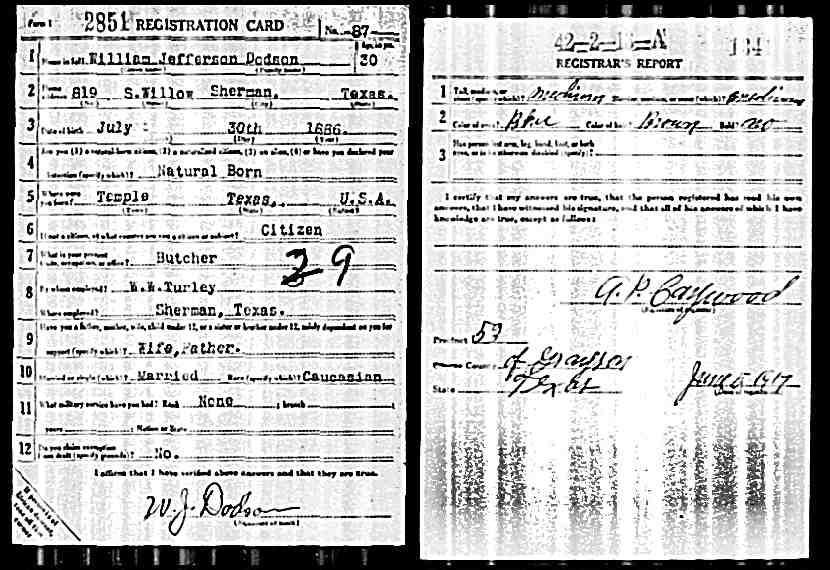 Form 1 2851 REGISTRATION CARD No. 87
1 Name in full William Jefferson Dodson Age, in yrs. 30
(Given name) (Family name)
2 Home address 819 S.Willow Sherman, Texas.
(No.) (Street) (City) (State)
3 Date of birth July 30th 1886.
(Month) (Day) (Year)
4 Are you (1) a natural-born citizen, (2) a naturalized citizen, (3) an alien, (4) or have you declared your
intention (specify which)? Natural Born
5 Where were you born? Temple Texas, U.S.A.
(Town) (State) (Nation)
6 If not a citizen, of what country are you a citizen or subject? Citizen
7 What is your present trade, occupation, or office? Butcher
29
8 By whom employed? W.W.Turley
Where employed? Sherman, Texas.
9 Have you a father, mother, wife, child under 12, or a sister or brother under 12, solely dependent on you for
support (specify which)? Wife, Father.
10 Married or single (which)? Married Race (specify which)? Caucasian
11 What military service have you had? Rank None ; branch
years ; Nation or State
12 Do you claim exemption from draft (specify grounds)? No.
I affirm that I have verified above answers and that they are true.
W. J. Dodson
(Signature or mark)
42-2-13-A 184
REGISTRAR'S REPORT
1 Tall, medium, or short (specify which)? Medium Slender, medium, or stout (which)? Medium
2 Color of eyes? Blue Color of hair? Brown Bald? no
3 Has person lost arm, leg, hand, foot, or both
eyes, or is he otherwise disabled (specify)?
I certify that my answers are true, that the person registered has read his own
answers, that I have witnessed his signature, and that all of his answers of which I have
knowledge are true, except as follows:
A. P. Caywood
(Signature of registrar)
Precinct 53
County of Grayson
State Texas June 5 1917